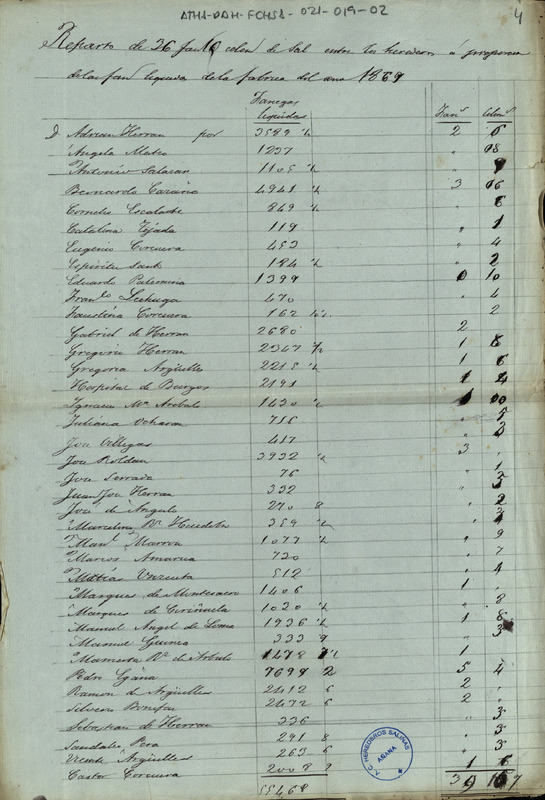 ATHA-DAH-FCHSA-021-019-02
4
Reparto de 26 fan 10 celem de Sal entre los herederos a proporcion
de las fan liquidas de la fabrica del ano 1869
Fanegas liquidas Fans Celems
D Adrian Herran por 3589 ½ 2 6
Angela Mateo 1237 " 08
Antonio Salazar 1105 ½ "
Bernardo Casaña 4941 ½ 3 06
Cornelio Escalante 849 ½ " 6
Catalina Tejada 119 " 1
Eugenio Corcuera 453 " 4
Espiritu Santo 184 ½ " 2
Eduardo Palomina 1399 0 10
Franco Lechuga 470 " 4
Faustina Corcuera 162 2
Gabriel de Herran 2680 2
Gregorio Herran 2347 ½ 1 8
Gregoria Argüelles 2215 ½ 1 6
Hospital de Burgos 2191 1
Ignacia Ma Arbulo 1430 ½ 1 00
Juliana Ocharan 716 " 5
Jose Villegas 417 " 3
Jose Roldan 3932 ½ 3 "
Jose Serrada 76 1
Juan Jose Herran 332 " 3
Jose de Angulo 270 8 " 2
Marcelina 359 ½ "
Manl Marron 1077 ½ " 9
Marcos Amarua 720 " 7
Matias Vicenta 512 " 4
Marques de Montesacro 1406 1 "
Marques de Ciriñuela 1020 ½ " 8
Manuel Angel de Loma 1936 ½ 1 8
Manuel Guinea 333 9 " 3
Mamerta de Arbulo 1478 1 "
Pedro Egaña 7698 2 5 4
Ramon de Argüelles 2412 6 2 "
Silverio Bonifaz 2472 6 2 "
Sebastian de Herran 336 " 3
Sandalio Pera 291 8 " 3
Vicente Argüelles 263 6 " 3
Castor Corcuera 2008 9 1 6
55468
A.C. HEREDEROS SALINAS AÑANA